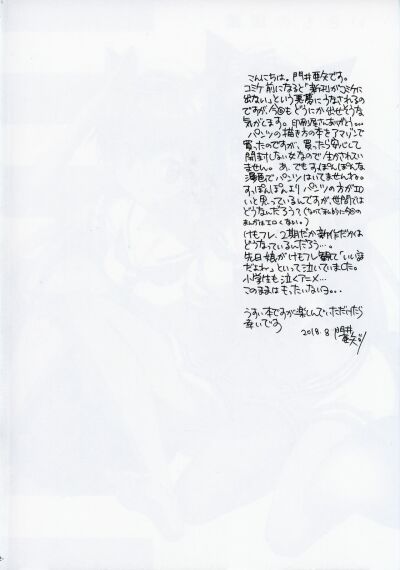 こんにちは。門井亜矢です。
コミケ前になると「新刊がコミケに
出ない」という悪夢にうなされるの
ですが、今回もどうにか出せそうな
気がします。印刷屋さんありがとう...
パンツの描き方の本をアマゾンで
買ったのですが、買ったら安心して
開封しない女なので生かされてい
ません。あ、でもすっぽんぽんな
漫画でパンツはいてませんね。
すっぽんぽんよりパンツの方がエロ
いと思っているんですが、世間では
どうなんだろう?(なので私的に今回の
まんがはエロくない。)
けもフレ、2期だか新作だかは
どうなっているんだろう…。
先日娘がけもフレ観て「いい話
だよね」といって泣いていました。
小学生も泣くアニメ…
このままはもったいないヨ。。
うすい本ですが楽しんでいただけたら
幸いです
2018.8 門井亜矢